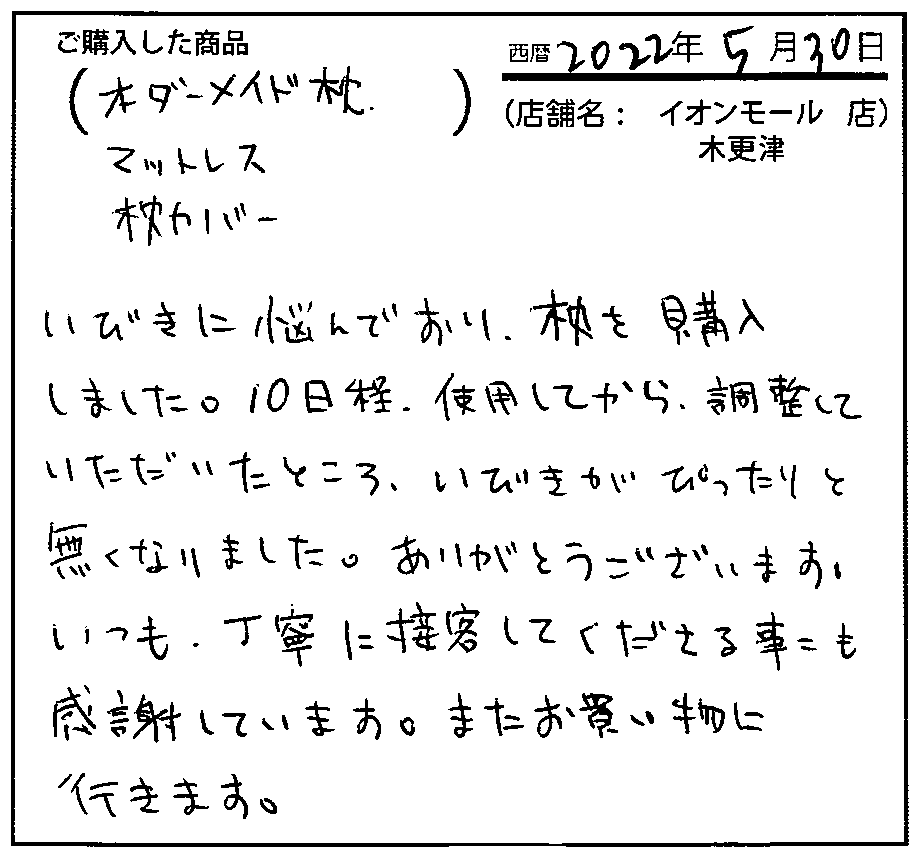 ご購入した商品
西暦2022年 5月30日
(オーダーメイド枕.)
(店舗名: イオンモール 店)
木更津
マットレス
枕カバー
いびきに悩んでおり、枕を購入
しました。10日程、使用してから、調整して
いただいたところ、いびきがぴったりと
無くなりました。ありがとうございます。
いつも、丁寧に接客してくださる事にも
感謝しています。またお買い物に
行きます。